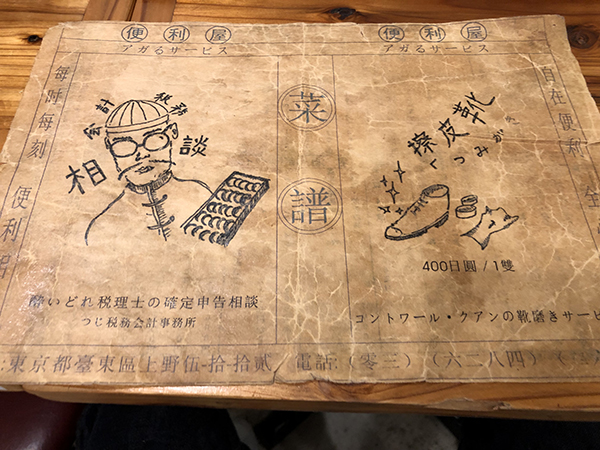 便利屋
アガるサービス
便利屋
アガるサービス
每时每刻 便利
自在便利
会計税務
相談
菜譜
擦皮革靴
くつみがき
400日圓 / 1雙
酔いどれ税理士の確定申告相談
つじ税務会計事務所
コントワール・クアンの靴磨きサービ
:東京都臺東區上野伍-拾-拾贰 電話:(零三)(六二八四)